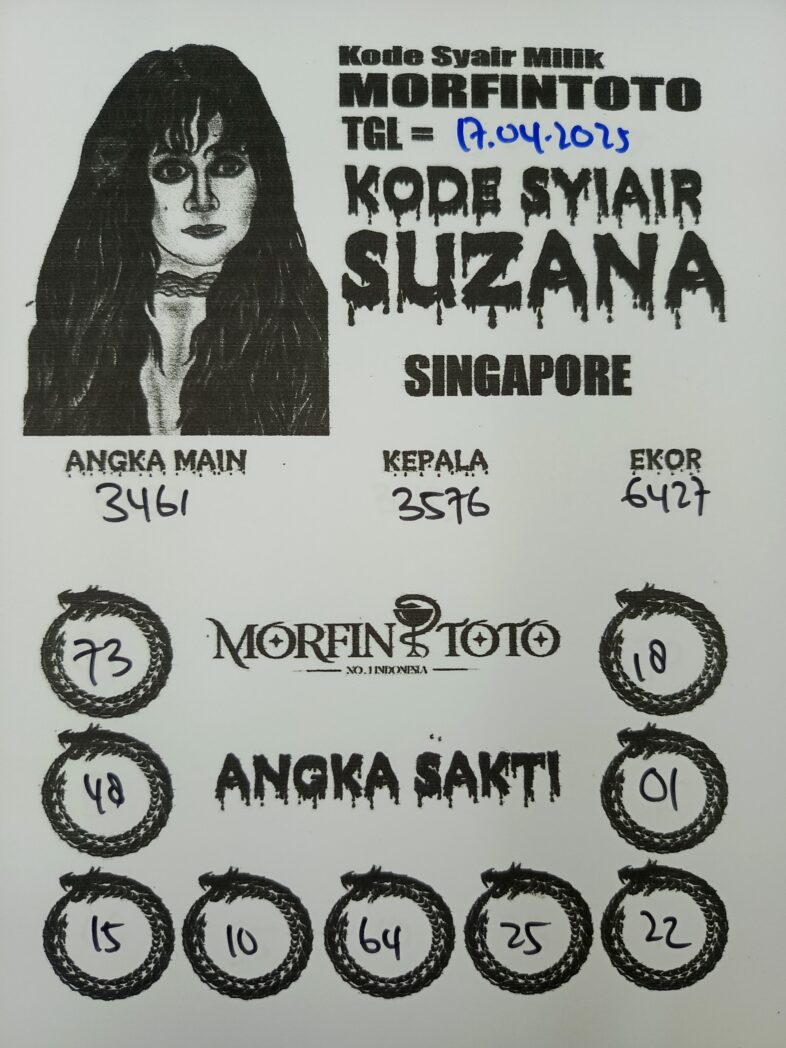 Kode Syair Milik
MORFINTOTO
TGL = 17.04.2025
KODE SYIAIR
SUZANA
SINGAPORE
ANGKA MAIN KEPALA EKOR
3461 3576 6427
73 MORFIN TOTO 18
NO.1 INDONESIA
48 ANGKA SAKTI 01
15 10 64 25 22